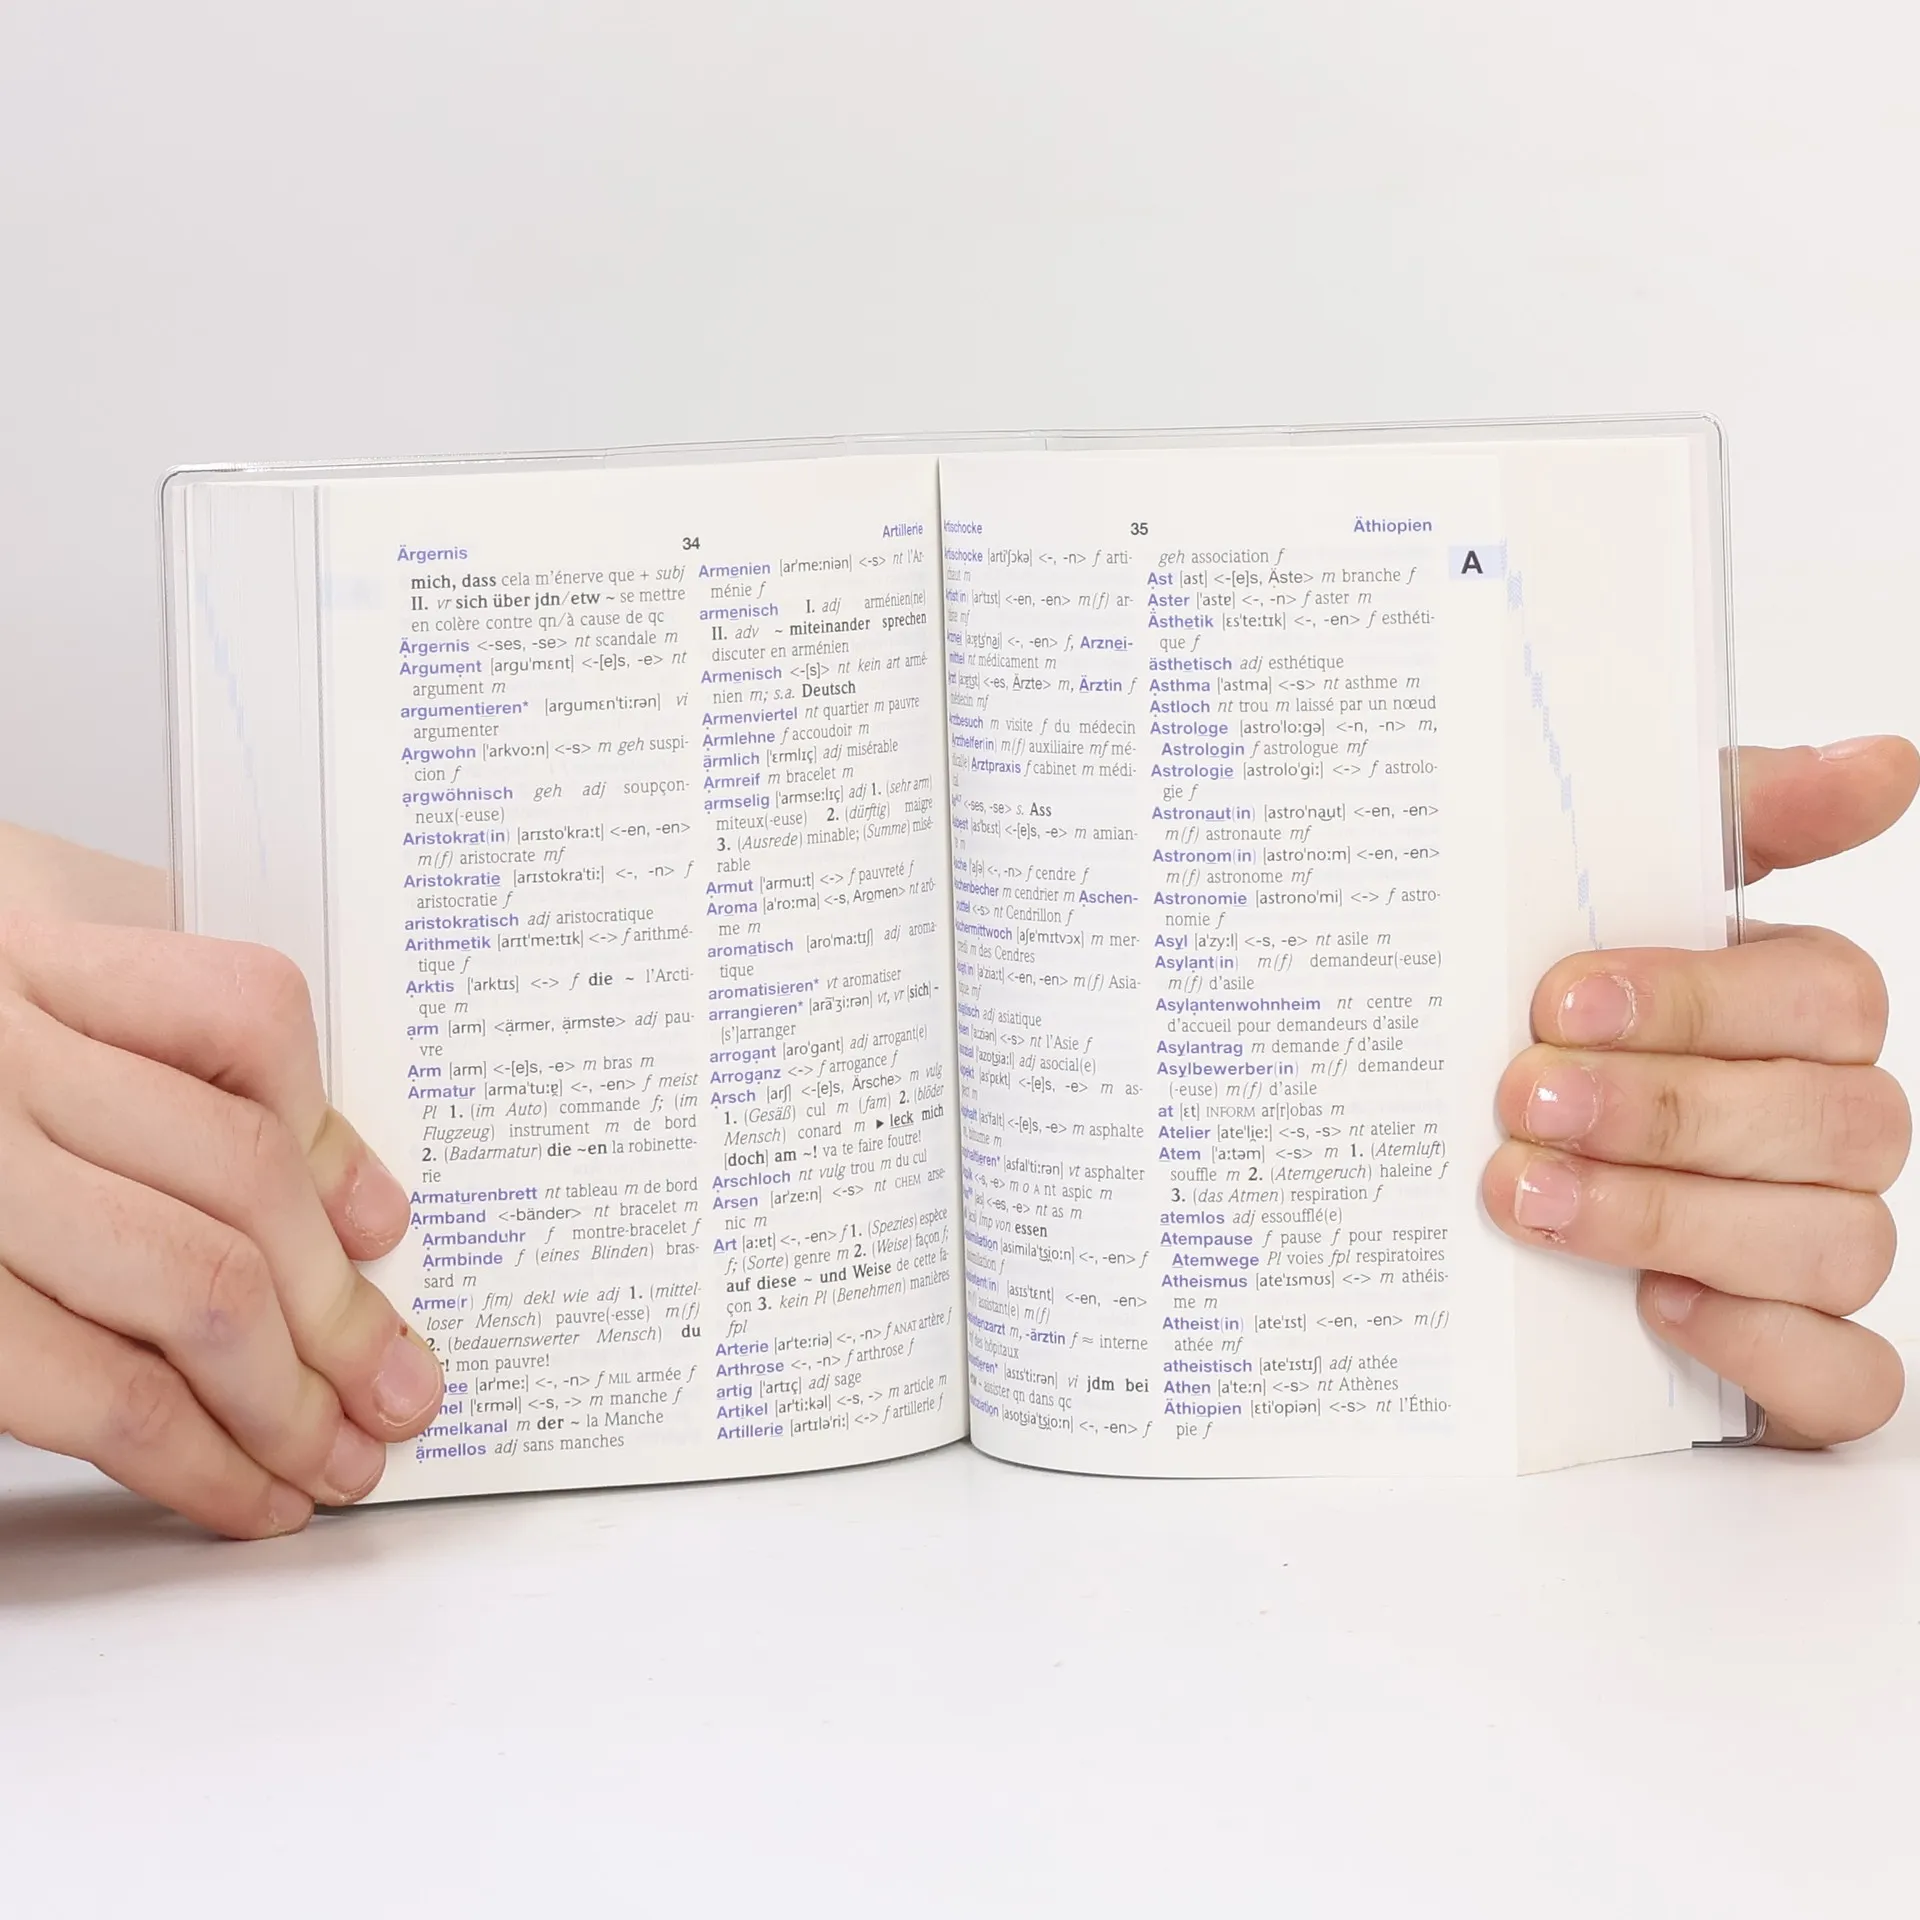 Ärgernis
34
Artillerie
mich, dass cela m'énerve que + subj
II. vr sich über jdn/etw ~ se mettre
en colère contre qn/à cause de qc
Ärgernis <-ses, -se> nt scandale m
Argument [argu'mɛnt] <-[e]s, -e> nt
argument m
argumentieren* [argumɛn'ti:rən] vi
argumenter
Argwohn ['arkvo:n] <-s> m geh suspi-
cion f
argwöhnisch geh adj soupçon-
neux(-euse)
Aristokrat(in) [arɪsto'kra:t] <-en, -en>
m(f) aristocrate mf
Aristokratie [arɪstokra'ti:] <-, -n> f
aristocratie f
aristokratisch adj aristocratique
Arithmetik [arɪt'me:tɪk] <-> f arithmé-
tique f
Arktis ['arktɪs] <-> f die ~ l'Arcti-
que m
arm [arm] <ärmer, ärmste> adj pau-
vre
Arm [arm] <-[e]s, -e> m bras m
Armatur [arma'tu:ɐ̯] <-, -en> f meist
Pl 1. (im Auto) commande f; (im
Flugzeug) instrument m de bord
2. (Badarmatur) die ~en la robinette-
rie
Armaturenbrett nt tableau m de bord
Armband <-bänder> nt bracelet m
Armbanduhr f montre-bracelet f
Armbinde f (eines Blinden) bras-
sard m
Arme(r) f(m) dekl wie adj 1. (mittel-
loser Mensch) pauvre(-esse) m(f)
2. (bedauernswerter Mensch) du
mon pauvre!
[ar'me:] <-, -n> f MIL armée f
['ɛrməl] <-s, -> m manche f
Ärmelkanal m der ~ la Manche
ärmellos adj sans manches
Armenien [ar'me:niən] <-s> nt l'Ar-
ménie f
armenisch I. adj arménien(ne)
II. adv ~ miteinander sprechen
discuter en arménien
Armenisch <-[s]> nt kein art armé-
nien m; s.a. Deutsch
Armenviertel nt quartier m pauvre
Armlehne f accoudoir m
ärmlich ['ɛrmlɪç] adj misérable
Armreif m bracelet m
armselig ['armse:lɪç] adj 1. (sehr arm)
miteux(-euse) 2. (dürftig) maigre
3. (Ausrede) minable; (Summe) misé-
rable
Armut ['armu:t] <-> f pauvreté f
Aroma [a'ro:ma] <-s, Aromen> nt arô-
me m
aromatisch [aro'ma:tɪʃ] adj aroma-
tique
aromatisieren* vt aromatiser
arrangieren* [arã'ʒi:rən] vt, vr [sich] ~
[s']arranger
arrogant [aro'gant] adj arrogant(e)
Arroganz <-> f arrogance f
Arsch [arʃ] <-[e]s, Ärsche> m vulg
1. (Gesäß) cul m (fam) 2. (blöder
Mensch) conard m ▶ leck mich
[doch] am ~! va te faire foutre!
Arschloch nt vulg trou m du cul
Arsen [ar'ze:n] <-s> nt CHEM arse-
nic m
Art [a:ɐt] <-, -en> f 1. (Spezies) espèce
f; (Sorte) genre m 2. (Weise) façon f;
auf diese ~ und Weise de cette fa-
çon 3. kein Pl (Benehmen) manières
fpl
Arterie [ar'te:riə] <-, -n> f ANAT artère f
Arthrose <-, -n> f arthrose f
artig ['artɪç] adj sage
Artikel [ar'ti:kəl] <-s, -> m article m
Artillerie [artɪlə'ri:] <-> f artillerie f
Artischocke
35
Äthiopien
A
Artischocke [arti'ʃɔkə] <-, -n> f arti-
chaut m
[ar'tɪst] <-en, -en> m(f) ar-
<-, -en> f, Arznei-
mittel nt médicament m
<-es, Ärzte> m, Ärztin f
médecin mf
Arztbesuch m visite f du médecin
Arzthelfer(in) m(f) auxiliaire mf mé-
Arztpraxis f cabinet m médi-
<-ses, -se> s. Ass
Asbest [as'bɛst] <-[e]s, -e> m amian-
Asche [aʃə] <-, -n> f cendre f
Aschenbecher m cendrier m Aschen-
puttel <-s> nt Cendrillon f
Aschermittwoch [aʃɐ'mɪtvɔx] m mer-
credi m des Cendres
[a'zia:t] <-en, -en> m(f) Asia-
tique mf
asiatisch adj asiatique
Asien [a:ziən] <-s> nt l'Asie f
asozial ['azotsia:l] adj asocial(e)
Aspekt [as'pɛkt] <-[e]s, -e> m as-
pect m
Asphalt [as'falt] <-[e]s, -e> m asphalte
m, bitume m
asphaltieren* [asfal'ti:rən] vt asphalter
<-s, -e> m o A nt aspic m
[as] <-es, -e> nt as m
Imp von essen
Assimilation [asimila'tsio:n] <-, -en> f
assimilation f
Assistent(in) [asɪs'tɛnt] <-en, -en>
m(f) assistant(e) m(f)
Assistenzarzt m, -ärztin f ≈ interne
mf des hôpitaux
assistieren* [asɪs'ti:rən] vi jdm bei
etw ~ assister qn dans qc
Assoziation [asotsia'tsio:n] <-, -en> f
geh association f
Ast [ast] <-[e]s, Äste> m branche f
Aster ['astɐ] <-, -n> f aster m
Ästhetik [ɛs'te:tɪk] <-, -en> f esthéti-
que f
ästhetisch adj esthétique
Asthma ['astma] <-s> nt asthme m
Astloch nt trou m laissé par un nœud
Astrologe [astro'lo:gə] <-n, -n> m,
Astrologin f astrologue mf
Astrologie [astrolo'gi:] <-> f astrolo-
gie f
Astronaut(in) [astro'naut] <-en, -en>
m(f) astronaute mf
Astronom(in) [astro'no:m] <-en, -en>
m(f) astronome mf
Astronomie [astrono'mi] <-> f astro-
nomie f
Asyl [a'zy:l] <-s, -e> nt asile m
Asylant(in) m(f) demandeur(-euse)
m(f) d'asile
Asylantenwohnheim nt centre m
d'accueil pour demandeurs d'asile
Asylantrag m demande f d'asile
Asylbewerber(in) m(f) demandeur
(-euse) m(f) d'asile
at [ɛt] INFORM ar[r]obas m
Atelier [ate'lie:] <-s, -s> nt atelier m
Atem ['a:təm] <-s> m 1. (Atemluft)
souffle m 2. (Atemgeruch) haleine f
3. (das Atmen) respiration f
atemlos adj essoufflé(e)
Atempause f pause f pour respirer
Atemwege Pl voies fpl respiratoires
Atheismus [ate'ɪsmʊs] <-> m athéis-
me m
Atheist(in) [ate'ɪst] <-en, -en> m(f)
athée mf
atheistisch [ate'ɪstɪʃ] adj athée
Athen [a'te:n] <-s> nt Athènes
Äthiopien [ɛti'opiən] <-s> nt l'Éthio-
pie f